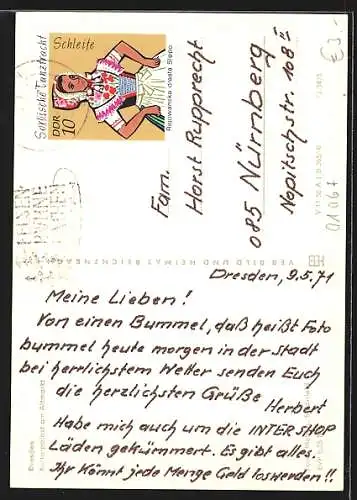 Sorbische Tanztracht
Schleife
DDR 10
Rejowanska drasta Slepo
€3.-
Fam.
Horst Rupprecht
085 Nürnberg
Nopitschstr. 108 II
01067
VEB BILD UND HEIMAT REICHENBACH
Dresden, 9.5.71
Meine Lieben!
Von einen Bummel, daß heißt Foto
bummel heute morgen in der Stadt
bei herrlichstem Wetter senden Euch
die herzlichsten Grüße
Herbert
Habe mich auch um die INTERSHOP
Läden gekümmert. Es gibt alles.
Ihr könnt jede Menge Geld loswerden!!
Dresden
am Altmarkt